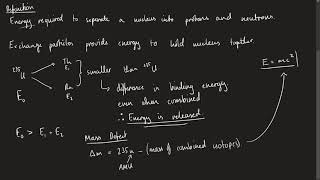 Definition
Energy required to separate a nucleus into protons and neutrons.
Exchange particles provide energy to hold nucleus together.
235U
Th
E1
smaller than 235U
E0
E2
difference in binding energy
even when combined
∴ Energy is released
E = mc²
E0 > E1 + E2
Mass Defect
Δm = 235u - (mass of combined isotopes)
AMU